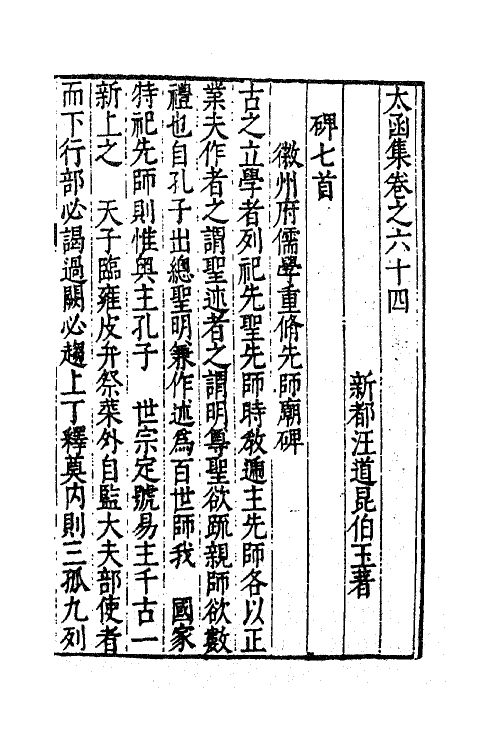 太函集卷之六十四
新都汪道昆伯玉著
碑七首
徽州府儒學重脩先師廟碑
古之立學者列祀先聖先師時敘遞主先師各以正
業夫作者之謂聖述者之謂明尊聖欲疏親師欲數
禮也自孔子出總聖明兼作述爲百世師我 國家
特祀先師則惟輿主孔子 世宗定號易主千古一
新上之 天子臨雍皮弁祭菜外自監大夫部使者
而下行部必謁過闕必趨上丁釋奠內則三孤九列